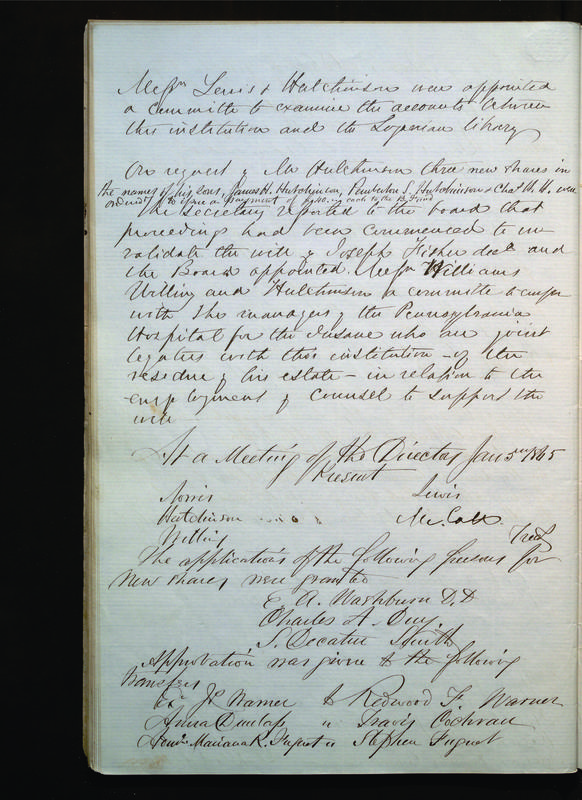 Messrs Lewis & Hutchinson were appointed
a committe to examine the accounts between
this institution and the Loganian library
On request of Mr Hutchinson three new shares in
the names of his sons, James H. Hutchinson, Pemberton S. Hutchinson & Chas H. H. were
ordered to issue a payment of $40. on each to the B. Fund
The Secretary reported to the board that
proceedings had been commenced to in-
validate the will of Joseph Fisher decd and
the Board appointed Messrs Williams
Willing and Hutchinson a committe to confer
with the managers of the Pennsylvania
Hospital for the Insane who are joint
legatees with this institution - of the
residue of his estate - in relation to the
employment of counsel to support the
will
At a Meeting of the Directors Jan 1865
Present
Norris Lewis
Hutchinson McCall
Willing Fred
The applications of the following persons for
new shares were granted
E A. Washburn D.D
Charles H. Duy
S. Decatur Smith
Approbation was given to the following
transfers
Exr Js Warner to Redwood F. Warner
Anna Dunlap " Travis Cochran
Mariana R. Fugust " Stephen Fugust